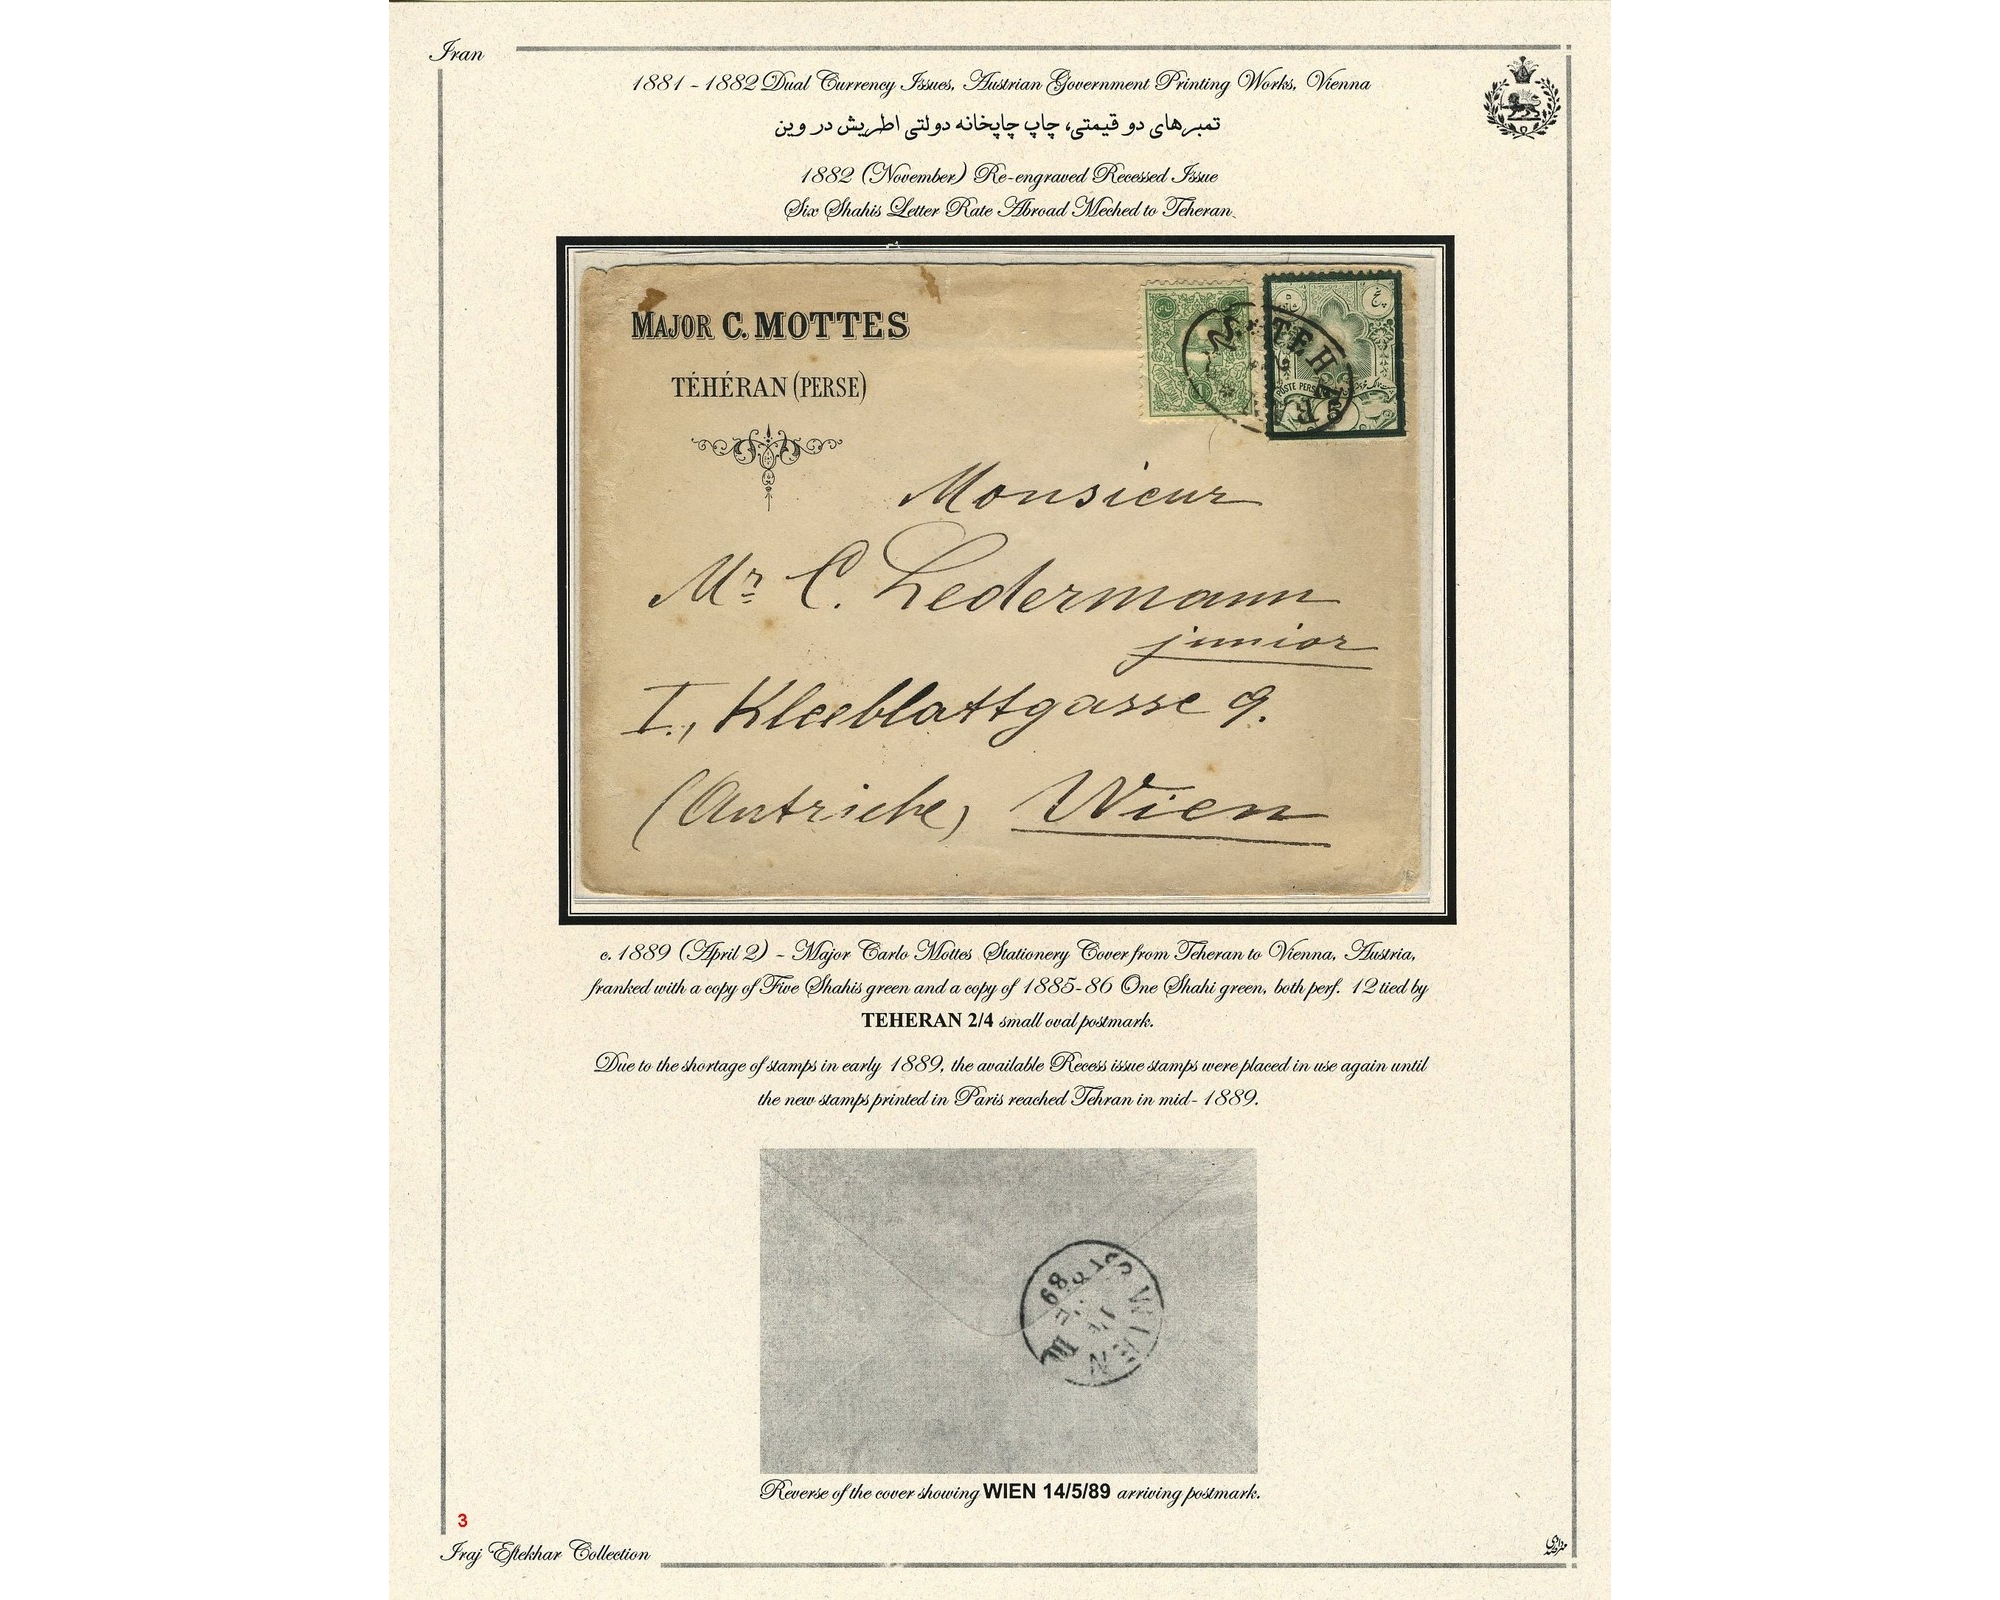 Iran
1881 - 1882 Dual Currency Issues, Austrian Government Printing Works, Vienna
تمبرهای دو قیمتی، چاپ چاپخانه دولتی اطریش در وین
1882 (November) Re-engraved Recessed Issue
Six Shahis Letter Rate Abroad Meched to Teheran
MAJOR C. MOTTES
TÉHÉRAN (PERSE)
TEHERAN
POSTE PERSANE
Monsieur
Mr C. Ledermann
junior
I., Kleeblattgasse 9.
(Autriche) Wien
c. 1889 (April 2) - Major Carlo Mottes Stationery Cover from Teheran to Vienna, Austria,
franked with a copy of Five Shahis green and a copy of 1885-86 One Shahi green, both perf. 12 tied by
TEHERAN 2/4 small oval postmark.
Due to the shortage of stamps in early 1889, the available Recess issue stamps were placed in use again until
the new stamps printed in Paris reached Tehran in mid- 1889.
WIEN
89
Reverse of the cover showing WIEN 14/5/89 arriving postmark.
3
Iraj Eftekhar Collection